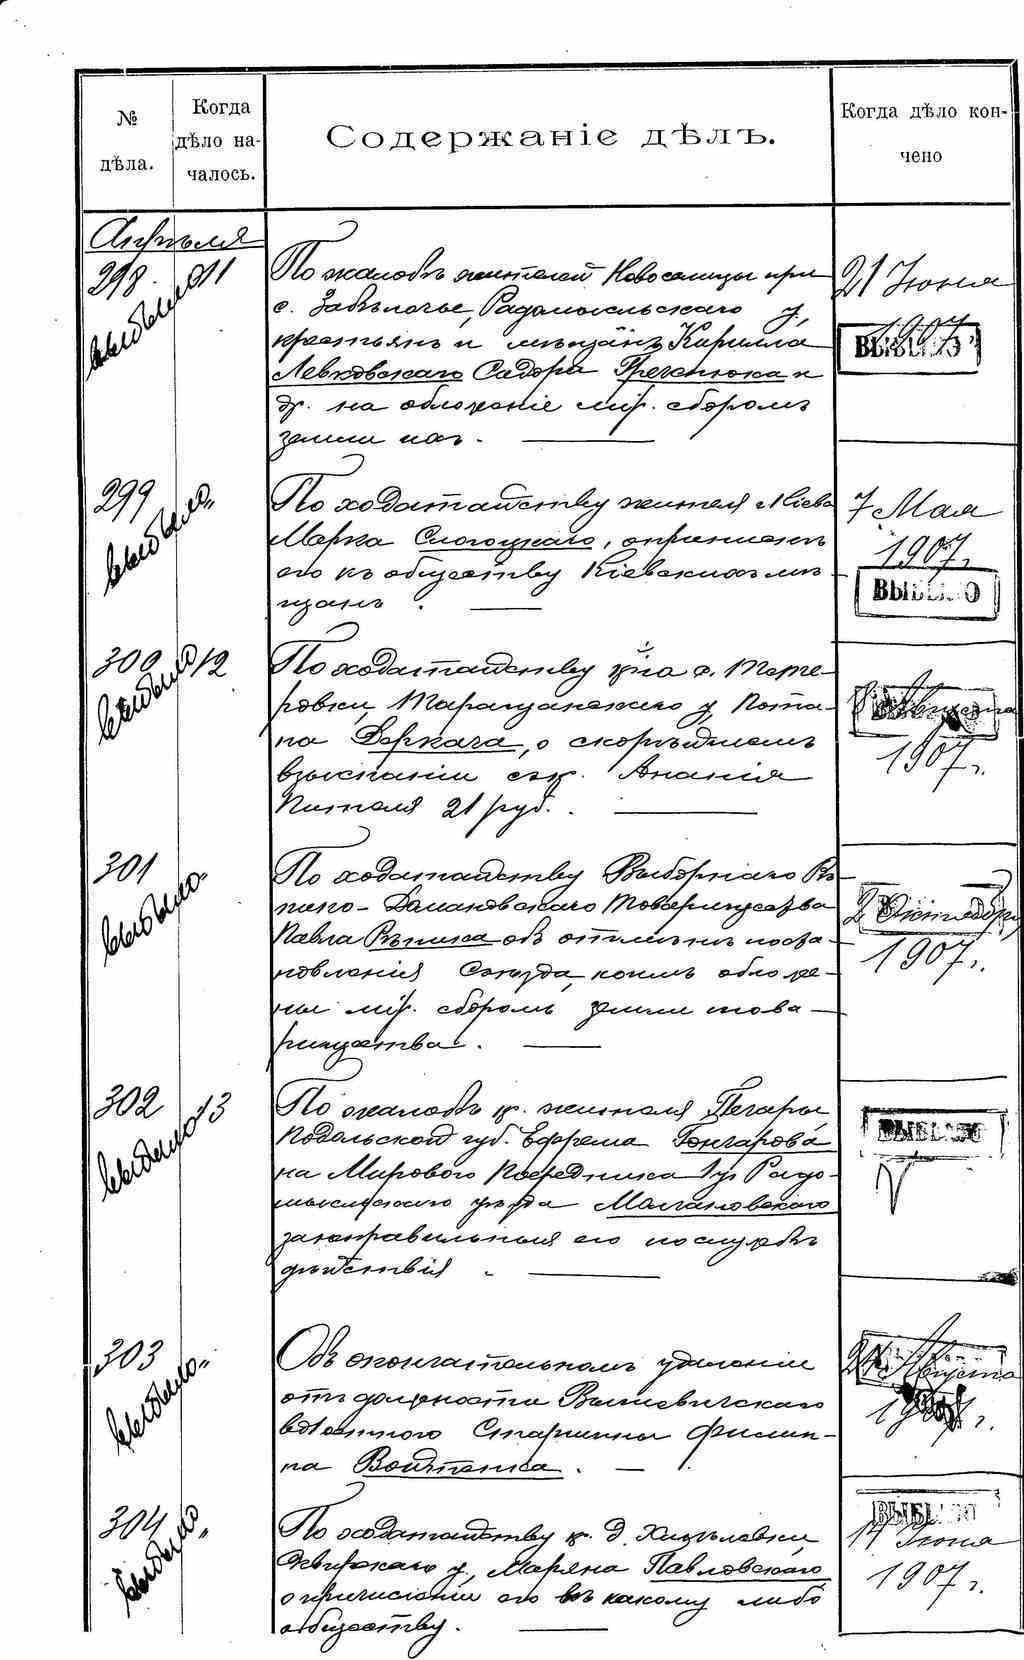 № дѣла.
Когда дѣло на-
чалось.
Содержаніе дѣлъ.
Когда дѣло кон-
чено
Апрѣля
298 11
выбыло
По жалобѣ жителей Новоселицы при
с. Забѣлочье, Радомысльскаго у.,
крестьянъ и мѣщанъ Кирилла
Левковскаго Сидора Гречнюка и
др. на обложеніе мір. сборомъ
земли ихъ.
21 Іюня
1907 г.
ВЫБЫЛО
299 "
выбыло
По ходатайству жителя г. Кіева
Марка Слогоцкаго, о припискѣ
его къ обществу Кіевскихъ мѣ-
щанъ.
7 Мая
1907 г.
ВЫБЫЛО
300 12
выбыло
По ходатайству кр-на с. Тете-
ревки, Таращанскаго у. Пота-
па Деркача, о скорѣйшемъ
взысканіи съ кр. Ананія
Кителя 21 руб.
8 Августа
1907 г.
ВЫБЫЛО
301 "
выбыло
По ходатайству Выборнаго Рѣ-
пино-Домановскаго Товарищества
Павла Рѣпина объ отмѣнѣ поста-
новленія Съѣзда, коимъ обложе-
ны мір. сборомъ земли това-
рищества.
2 Октября
1907 г.
302 13
выбыло
По жалобѣ кр. жителя Печары
Подольской губ. Ефрема Гончарова
на Мирового Посредника 1 уч. Радо-
мысльскаго уѣзда Малаховскаго
за неправильныя его по службѣ
дѣйствія.
ВЫБЫЛО
303 "
выбыло
Объ окончательномъ удаленіи
отъ должности Вышевичскаго
волостного Старшины Филип-
па Войтенка.
24 Августа
1907 г.
304 "
выбыло
По ходатайству кр. д. Хмѣлевки,
Сквирскаго у., Марьяна Павловскаго
о причисленіи его къ какому либо
обществу.
ВЫБЫЛО
14 Іюня
1907 г.